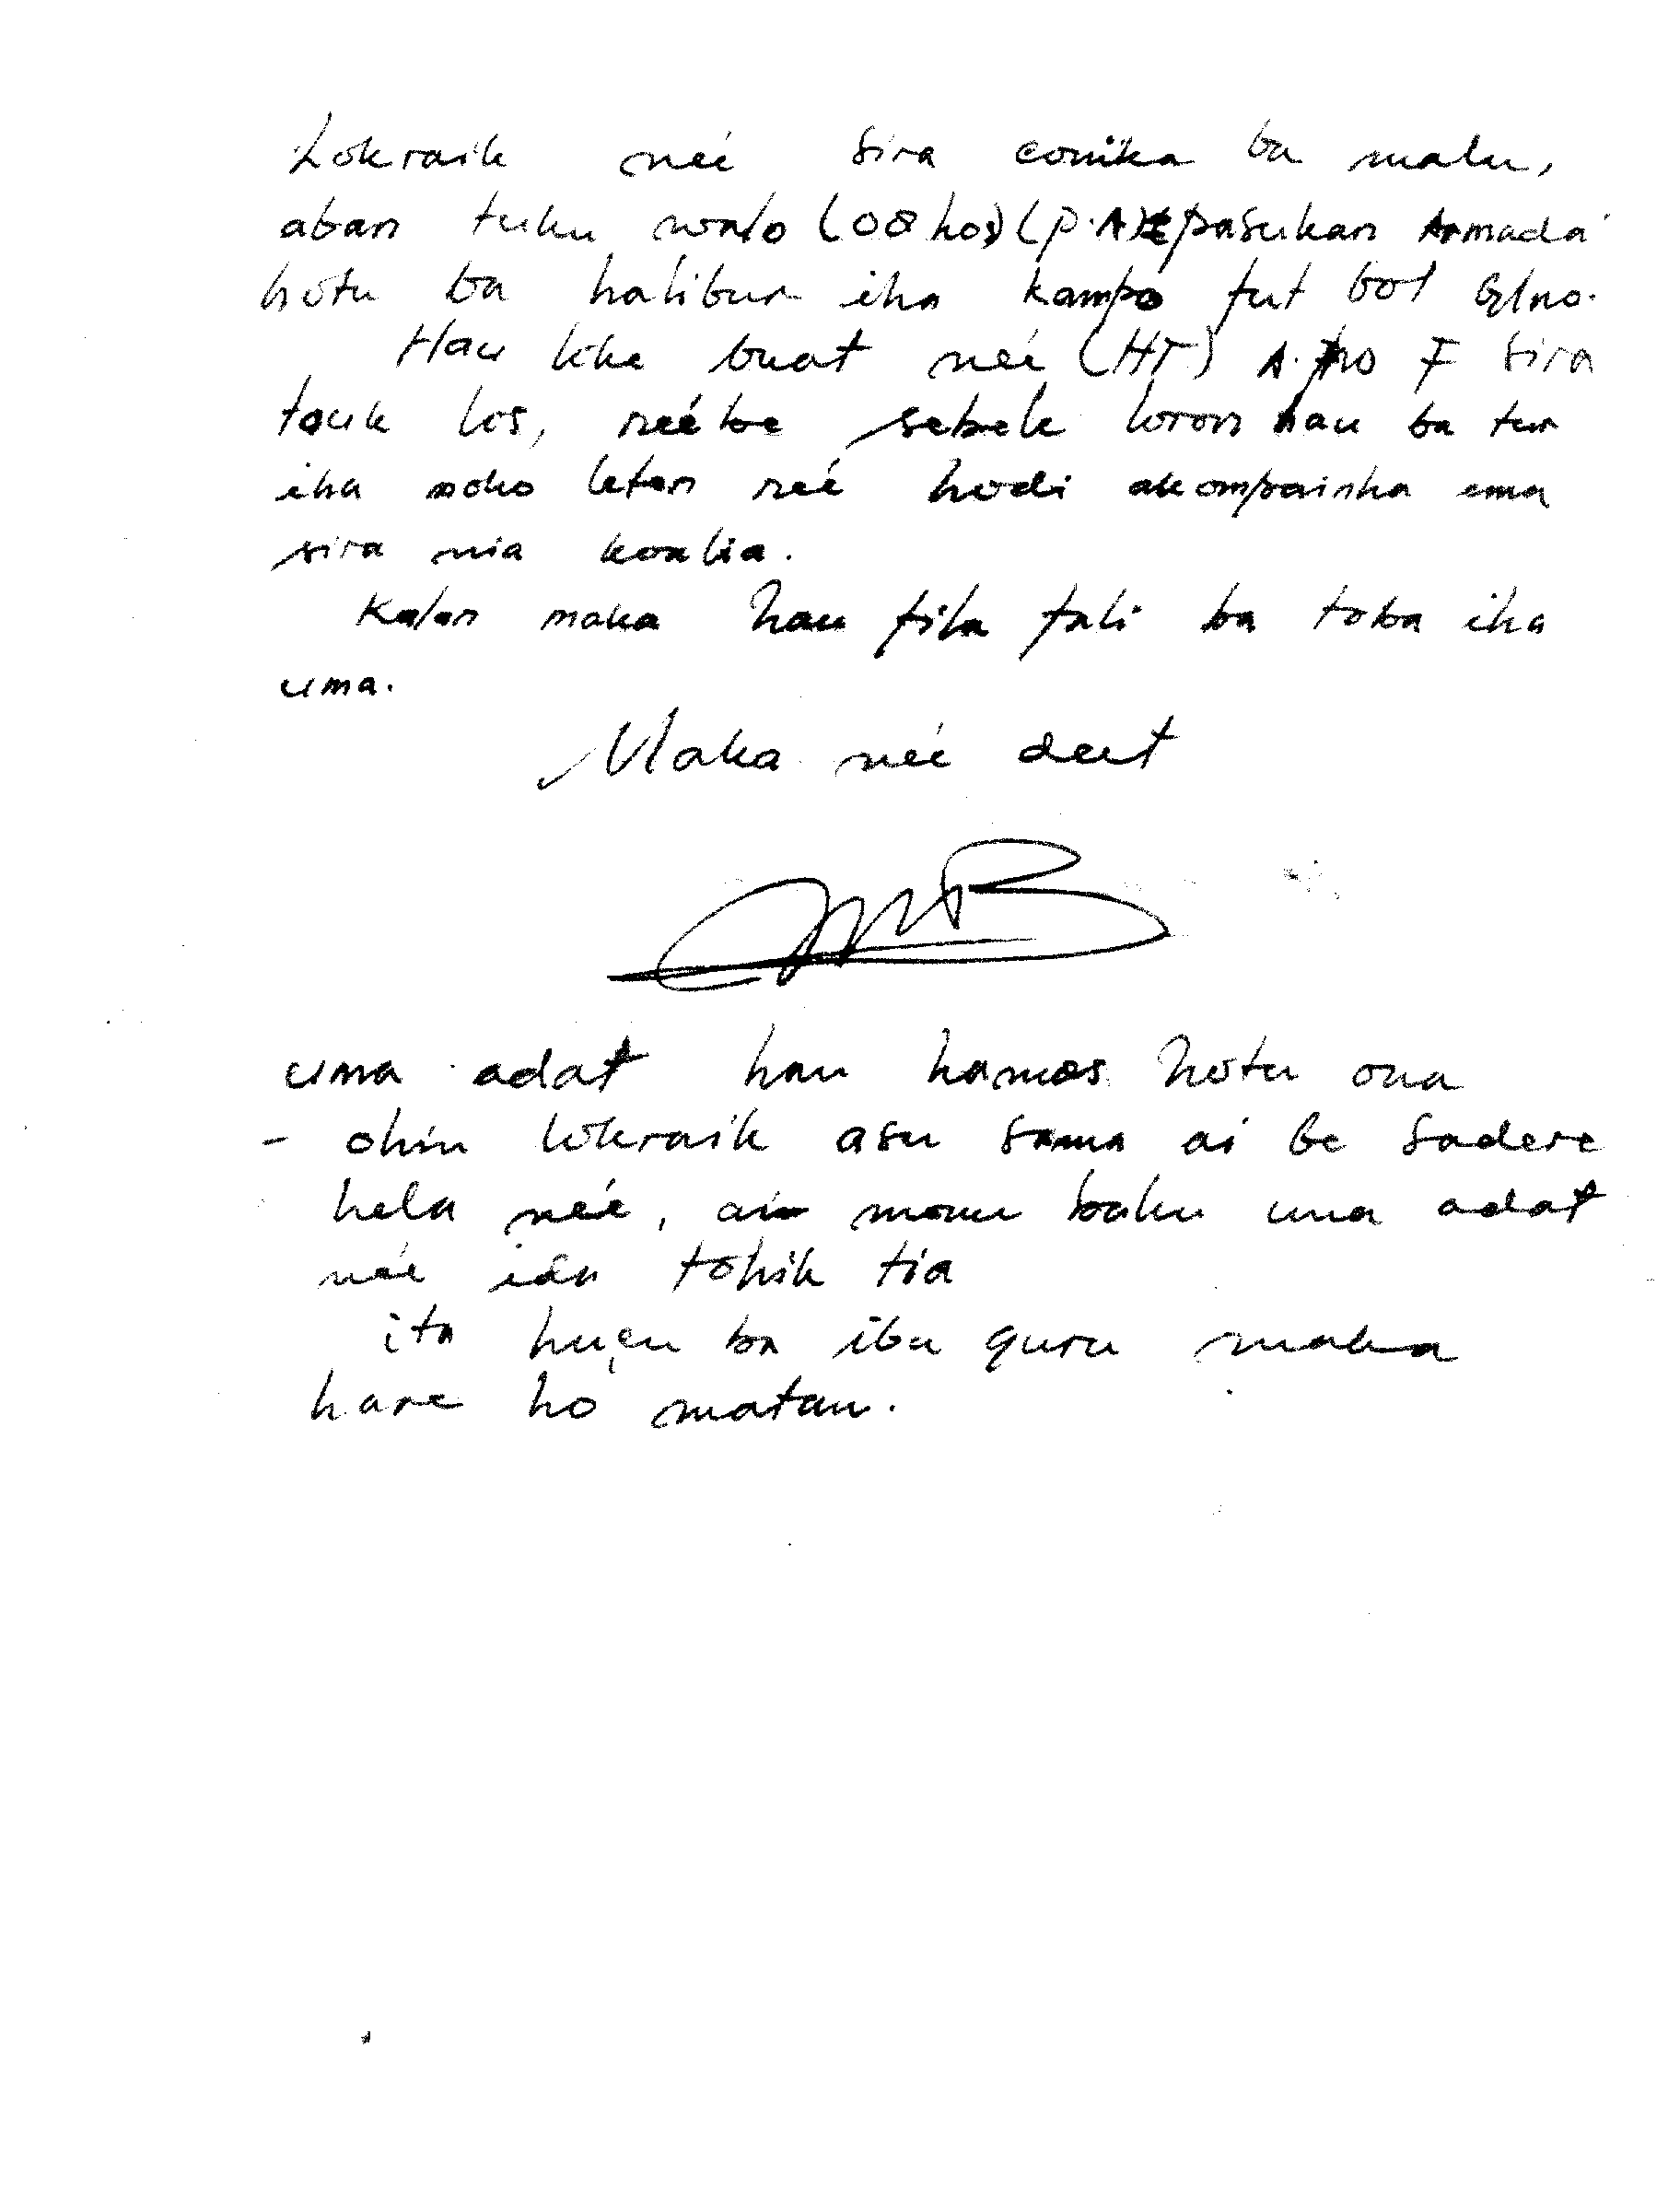 Lokraik neé sira comika ba malu,
aban tuku walo (08 hos) (P.A) pasukan Armada
hotu ba halibur iha kampo fut bol Glno.
Hau lihe buat neé (HT) A. no F sira
tauk los, neé be sebele loron hau ba tur
iha noho leten neé hodi akompainha ema
sira nia koalia.
Kalan maka hau fila fali ba toba iha
uma.
Maka neé deit
uma adat hau hamos hotu ona
- ohin lokraik asu sama ai be sadere
hela neé, ai monu baku uma adat
neé ida tohik tia
ita husu ba ibu guru maka
hare ho matan.